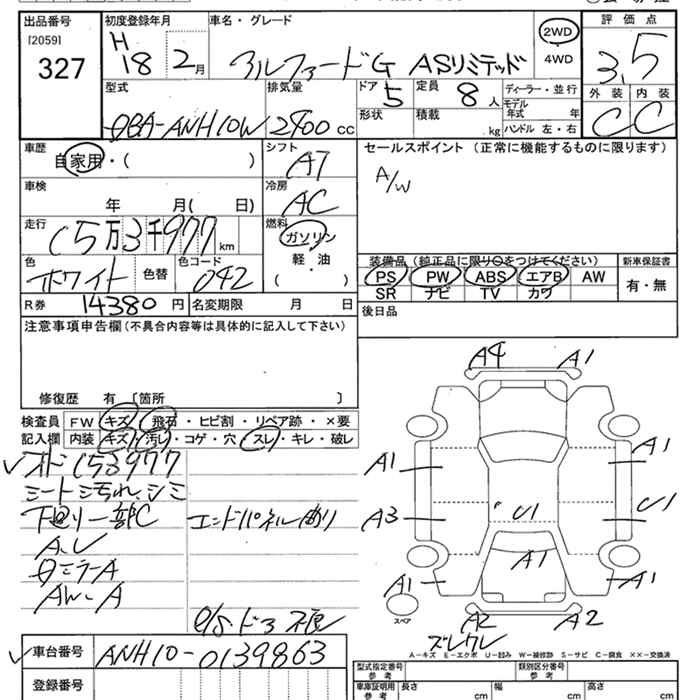 出品番号 初度登録年月 車名・グレード 評価点
[2059] 327 H 18 2月 アルファード G ASリミテッド 2WD 4WD 3.5
型式 排気量 ドア 5 定員 8人 ディーラー・並行 外装 内装
ANH10W 2400cc 形状 積載 kg モデル年式 年 ハンドル 左・右 C C
車歴 シフト セールスポイント (正常に機能するものに限ります)
自家用・( ) AT A/W
車検 年 月( 日) 冷房 AC
走行 15万3千977km 燃料 ガソリン・軽油 ( )
装備品 (純正品に限り○をつけてください) 新車保証書
PS PW ABS エアB AW 有・無
SR ナビ TV カワ
色 ホワイト 色替 色コード 042
R券 14380円 名変期限 月 日 後日品
注意事項申告欄(不具合内容等は具体的に記入して下さい)
修復歴 有 〔箇所 〕
検査員 FW キズ・飛石・ヒビ割・リペア跡・×要
記入欄 内装 キズ・汚レ・コゲ・穴・スレ・キレ・破レ
153977
シート汚れ、シミ
下廻り一部C エンドパネル曲り
A.U
ミラーA
AW-A
A4 A1
A1 A1
A3 U1 U1
A1
A1 A1
スペア
A2 A2
ズレワレ
A-キズ E-エクボ U-凹み W-補修跡 S-サビ C-腐食 ××-交換済
車台番号 ANH10-0139863
登録番号
型式指定番号 参考 類別区分番号 参考
車庫証明用 参考 長さ cm 幅 cm 高さ cm